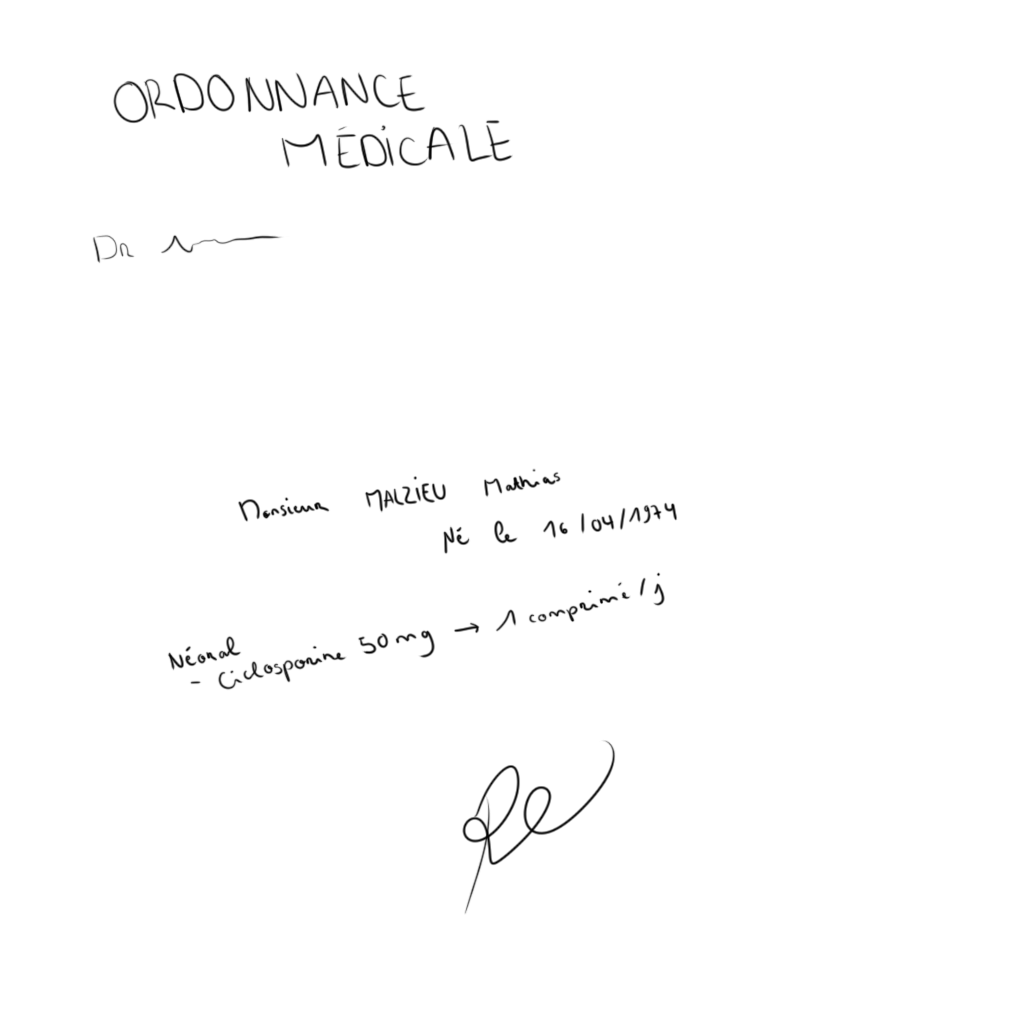 ORDONNANCE
MÉDICALE
Dr
Monsieur MALZIEU Mathias
Né le 16/04/1974
Néoral
- Ciclosporine 50mg → 1 comprimé/j